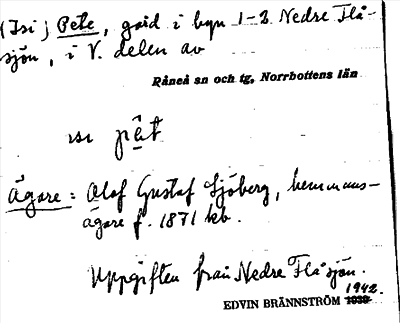 (Isi) Pete, gård i byn 1-3 Nedre Flå-
sjön, i V. delen av
Råneå sn och tg, Norrbottens län
ɪsɪ pêt
Ägare: Olof Gustaf Sjöberg, hemmans-
ägare f. 1871 kb.
Uppgiften från Nedre Flåsjön.
1942.
EDVIN BRÄNNSTRÖM 1939